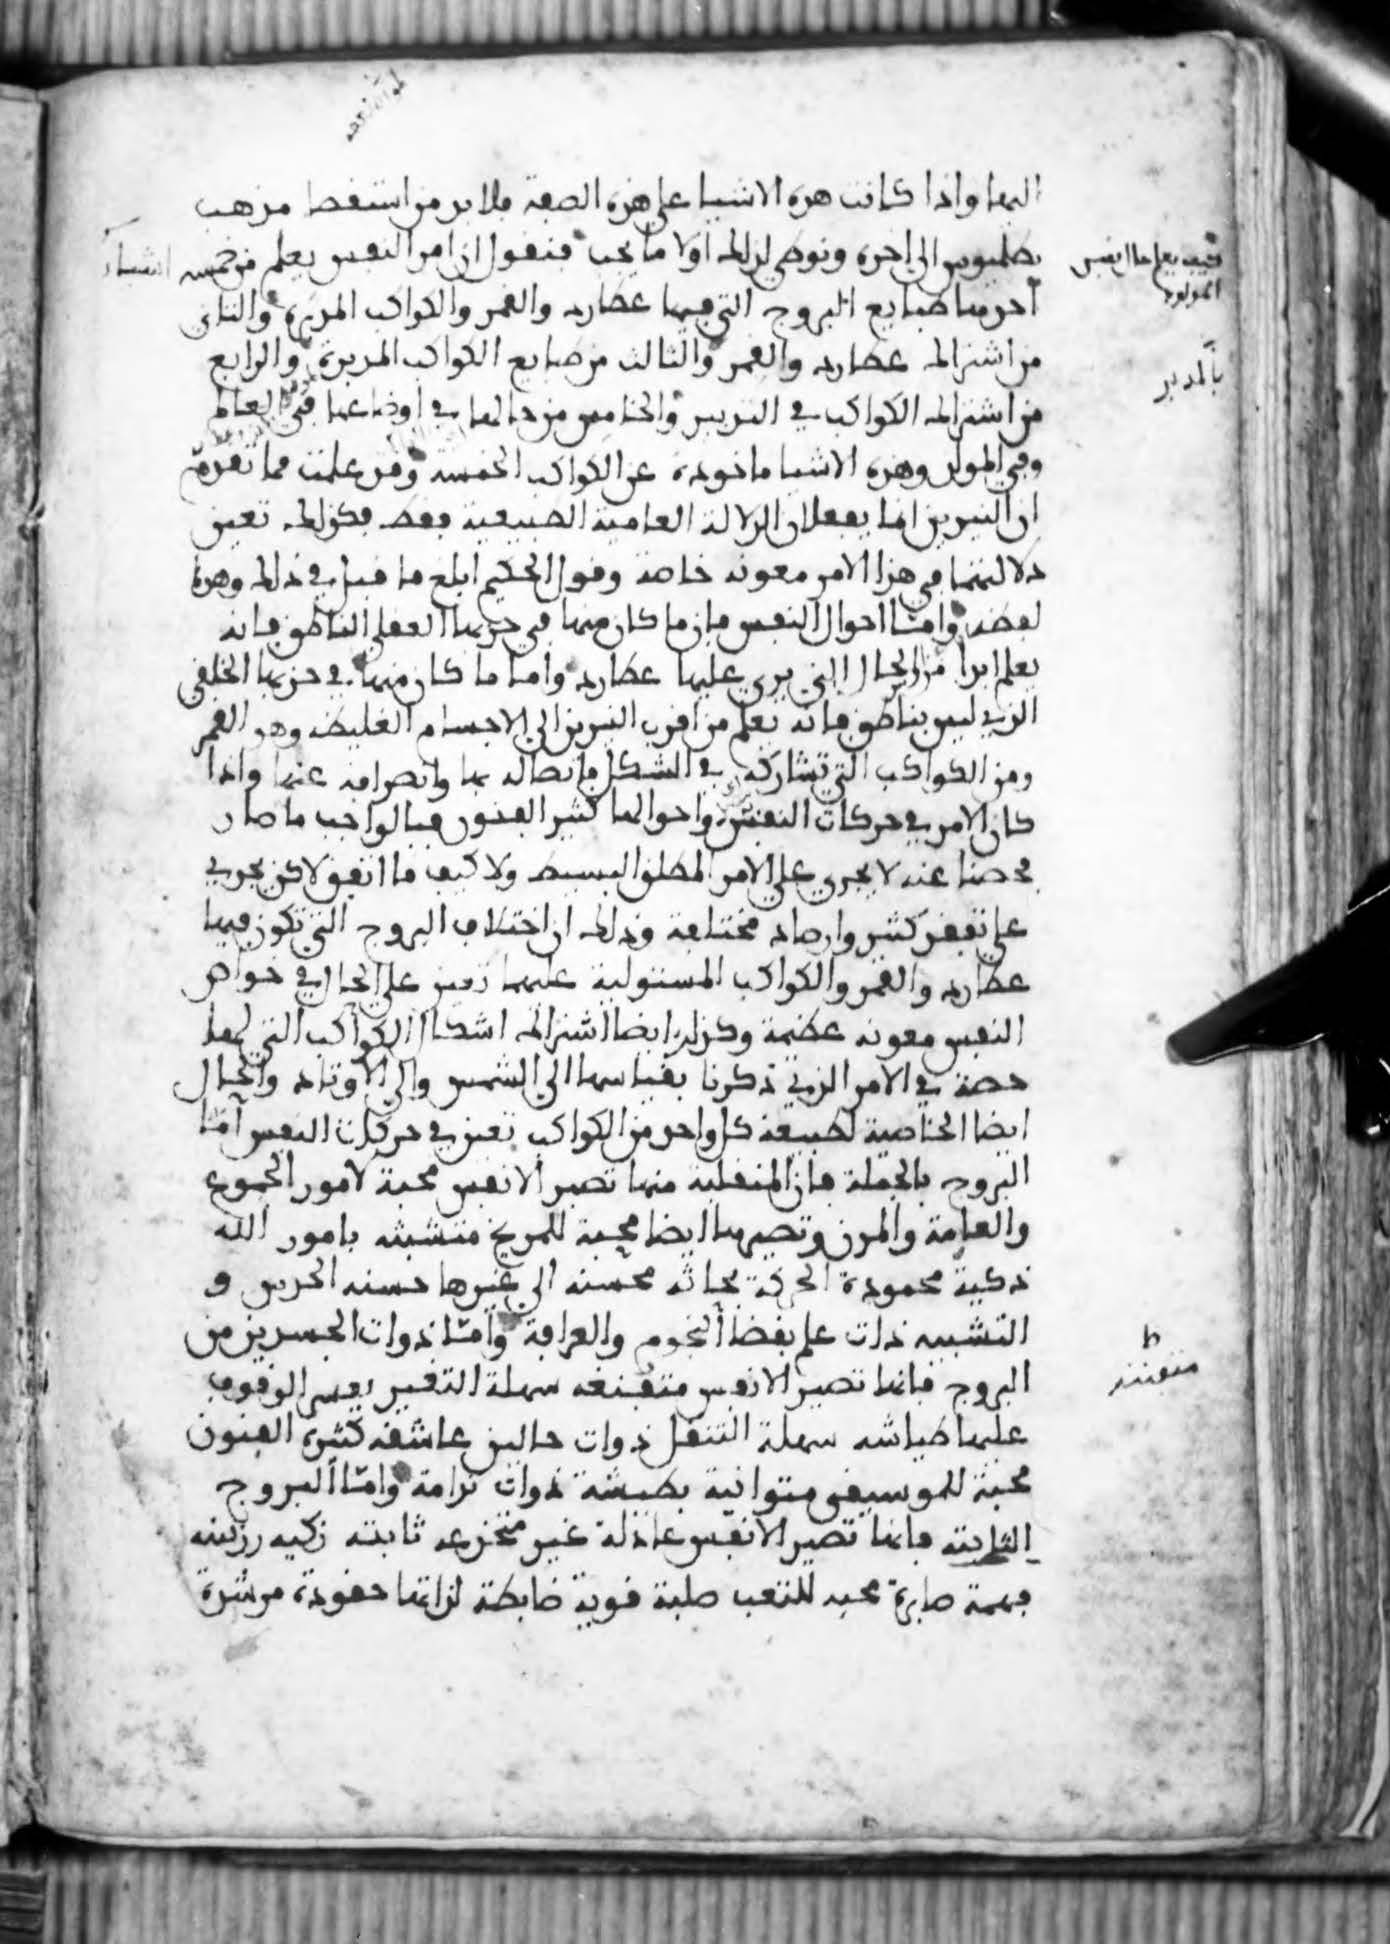 اليها واذا كانت هذه الاشيا على هذه الصفة فلا بد من استقصا مذهب
بطلميوس الى اخره ونوطي لذلك اولا ما يجب فنقول ان امر النفس يعلم من خمسه اشياء
كيف يعلم حال نفس
المولود
احدها طبايع البروج التي فيها عطارد والقمر والكواكب المدبرة والثاني
من اشتراك عطارد والقمر والثالث من طبايع الكواكب المدبرة والرابع
بالمدبر
من اشتراك الكواكب في التدبير والخامس من حالها في اوضاعها في العالم
وفي المولد وهذه الاشيا ماخوذة عن الكواكب الخمسة وقد علمت مما تقدم
ان النيرين انما يفعلان الدلالة العامية الطبيعية فقط فكذلك تعين
دلالتهما في هذا الامر معونة خاصة وقول الحكيم ابلغ ما قيل في ذلك وهذه
لفظه واما احوال النفس فان ما كان منها في حزبها العقلي الناطق فانه
يعلم ابدا من الحال التي يرى عليها عطارد واما ما كان منها في حزبها الخلقي
الذي ليس بناطق فانه يعلم من اقرب النيرين الى الاجسام الغليظة وهو القمر
ومن الكواكب التي تشاركه في الشكل باتصاله بها وانصرافه عنها واذا
كان الامر في حركات النفس واحوالها كثير الفنون فبالواجب ما صار
فحصنا عنه لا يجري على الامر المطلق البسيط ولا كيف ما اتفق لاكن يجري
على تفقد كثير وارصاد مختلفة وذلك ان اختلاف البروج التي تكون فيها
عطارد والقمر والكواكب المستولية عليهما تعين على الحال في خواص
النفس معونة عظيمة وكذلك ايضا اشتراك اشكال الكواكب التي لها
حصة في الامر الذي ذكرنا بقياسها الى الشمس والى الاوتاد والحال
ايضا الخاصية لطبيعة كل واحد من الكواكب تعين في حركات النفس اما
البروج بالجملة فان المنقلبة منها تصير الانفس محبة لامور الجموع
والعامة والمدن وتصيرها ايضا محبة للمديح متشبثه بامور الله
ذكية محمودة الحركة بحاثه محسنه الى غيرها حسنه الحدس و
التشبيه ذات علم بقضا النجوم والعرافة واما ذوات الجسدين من
البروج فانها تصير الانفس متفننه سهلة التغير يعسر الوقوف
ط
متفننه
عليها طياشه سهلة التنقل ذوات حالين عاشقه كثيرة الفنون
محبة للموسيقى متوانية بطيشة ذوات ندامة واما البروج
الثابتة فانها تصير الانفس عادلة غير متخدعه ثابته زكيه رزينه
فهمة صابرة محبه للتعب صلبة قوية ضابطة لذاتها حقودة مرشدة